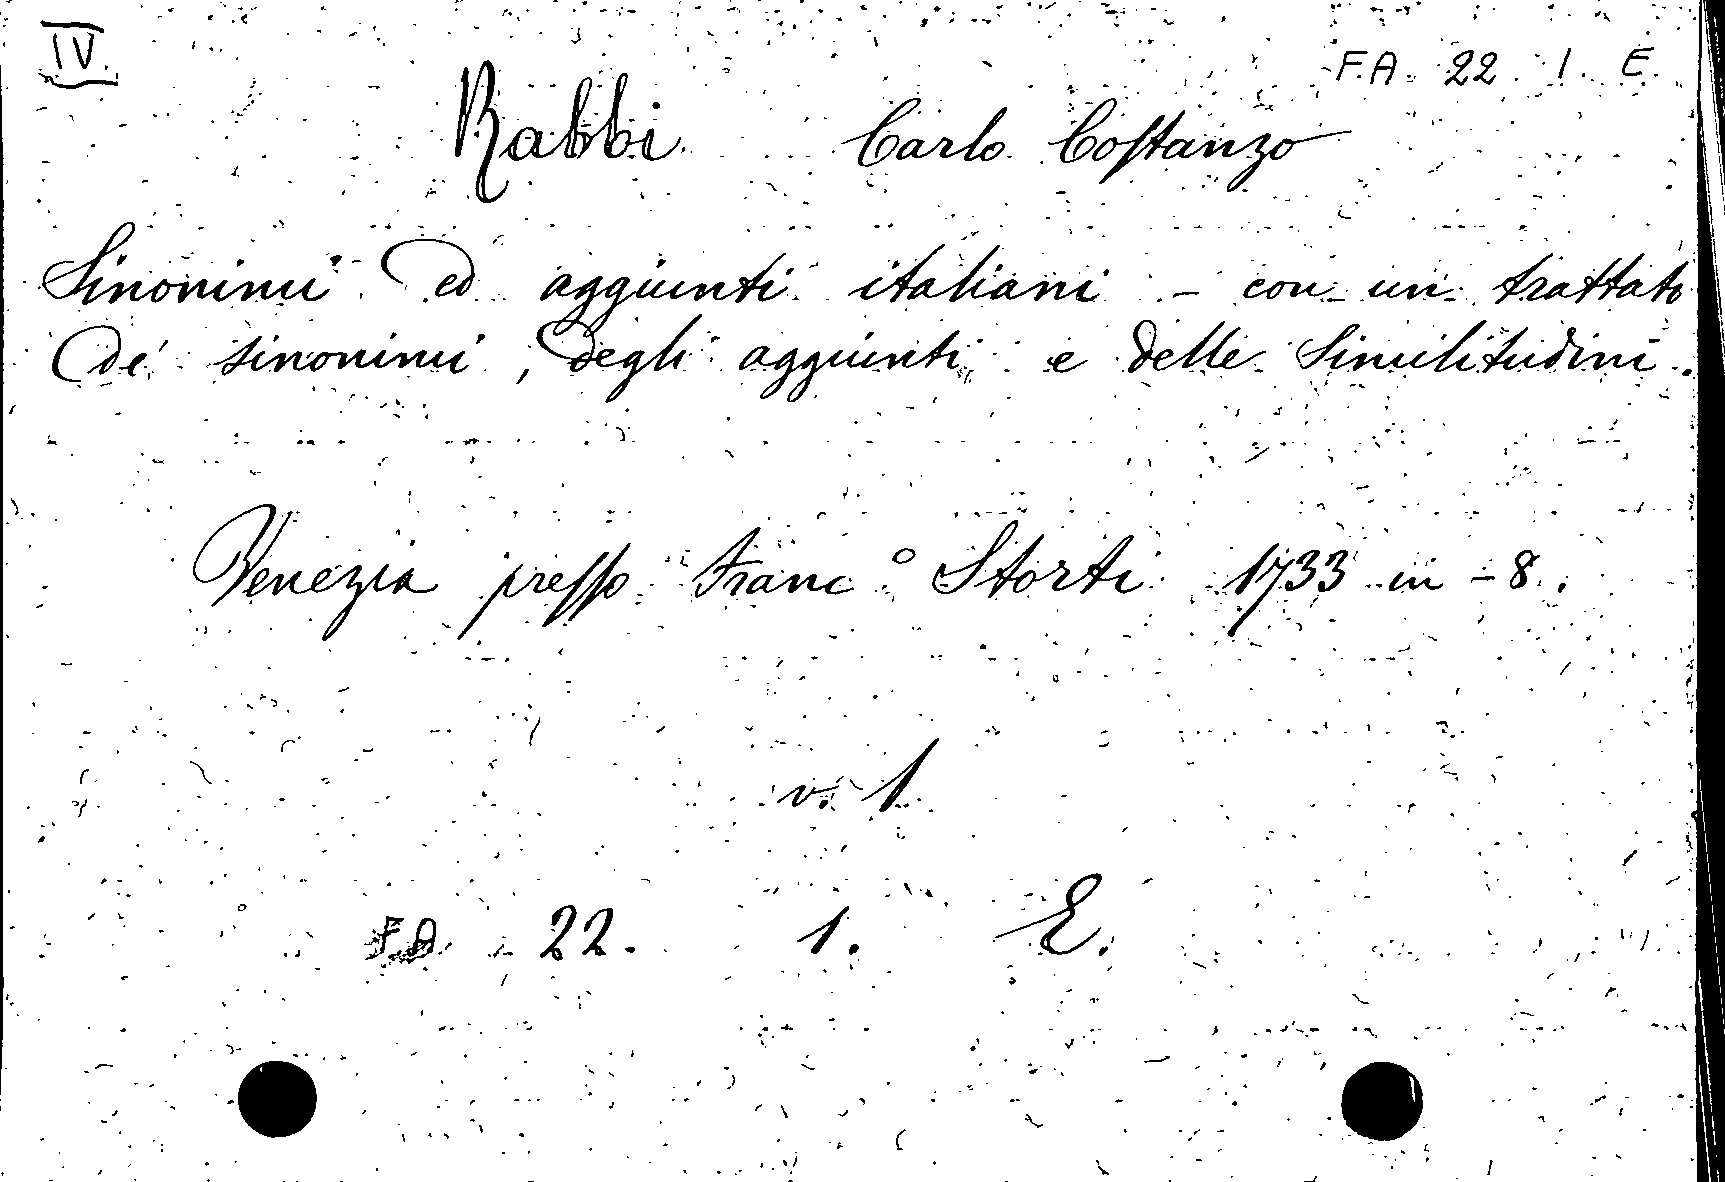 IV.
F.A. 22. 1. E.
Rabbi Carlo Coſtanzo
Sinonimi ed aggiunti italiani - con un trattato
de' sinonimi, degli aggiunti e delle similitudini.
Venezia preſſo Franc° Storti 1733 in-8.
v. 1
F.A. 22. 1. E.